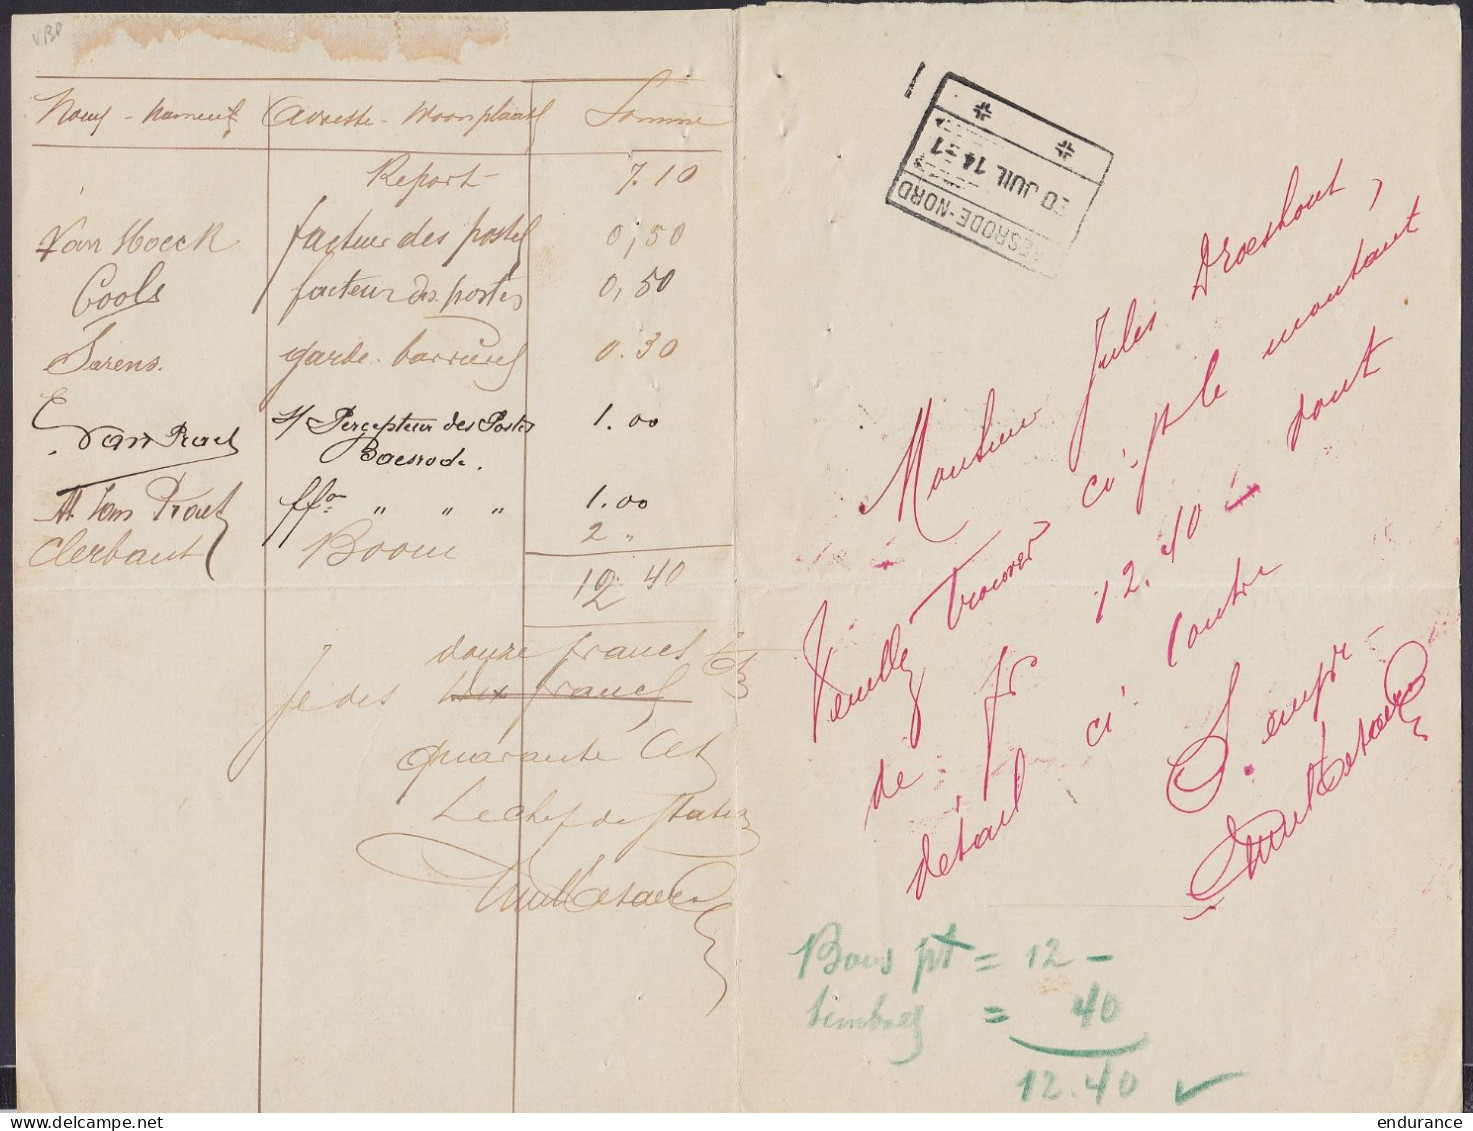 VBP
Noms - Namen Adresse - Woonplaats Somme
Report 7.10
Van Hoeck facteur des postes 0,50
Cools facteur des postes 0,50
Sarens. garde-barrières 0.30
E. Van Praet s/ Percepteur des Postes 1.00
Baesrode.
A. Van Praet ffon " " " 1.00
Clerbaut Boom 2 "
12.40
douze francs
Je dis dix francs
quarante Cts
Le chef de Station
ESRODE-NORD
20 JUIL 14
Monsieur Jules Droeshout,
Veuillez trouver ci-pt le montant
de fr 12.40 dont
détail ci-contre
S. empr-
Bons pt = 12 -
timbres = 40
12.40 ✓
endurance